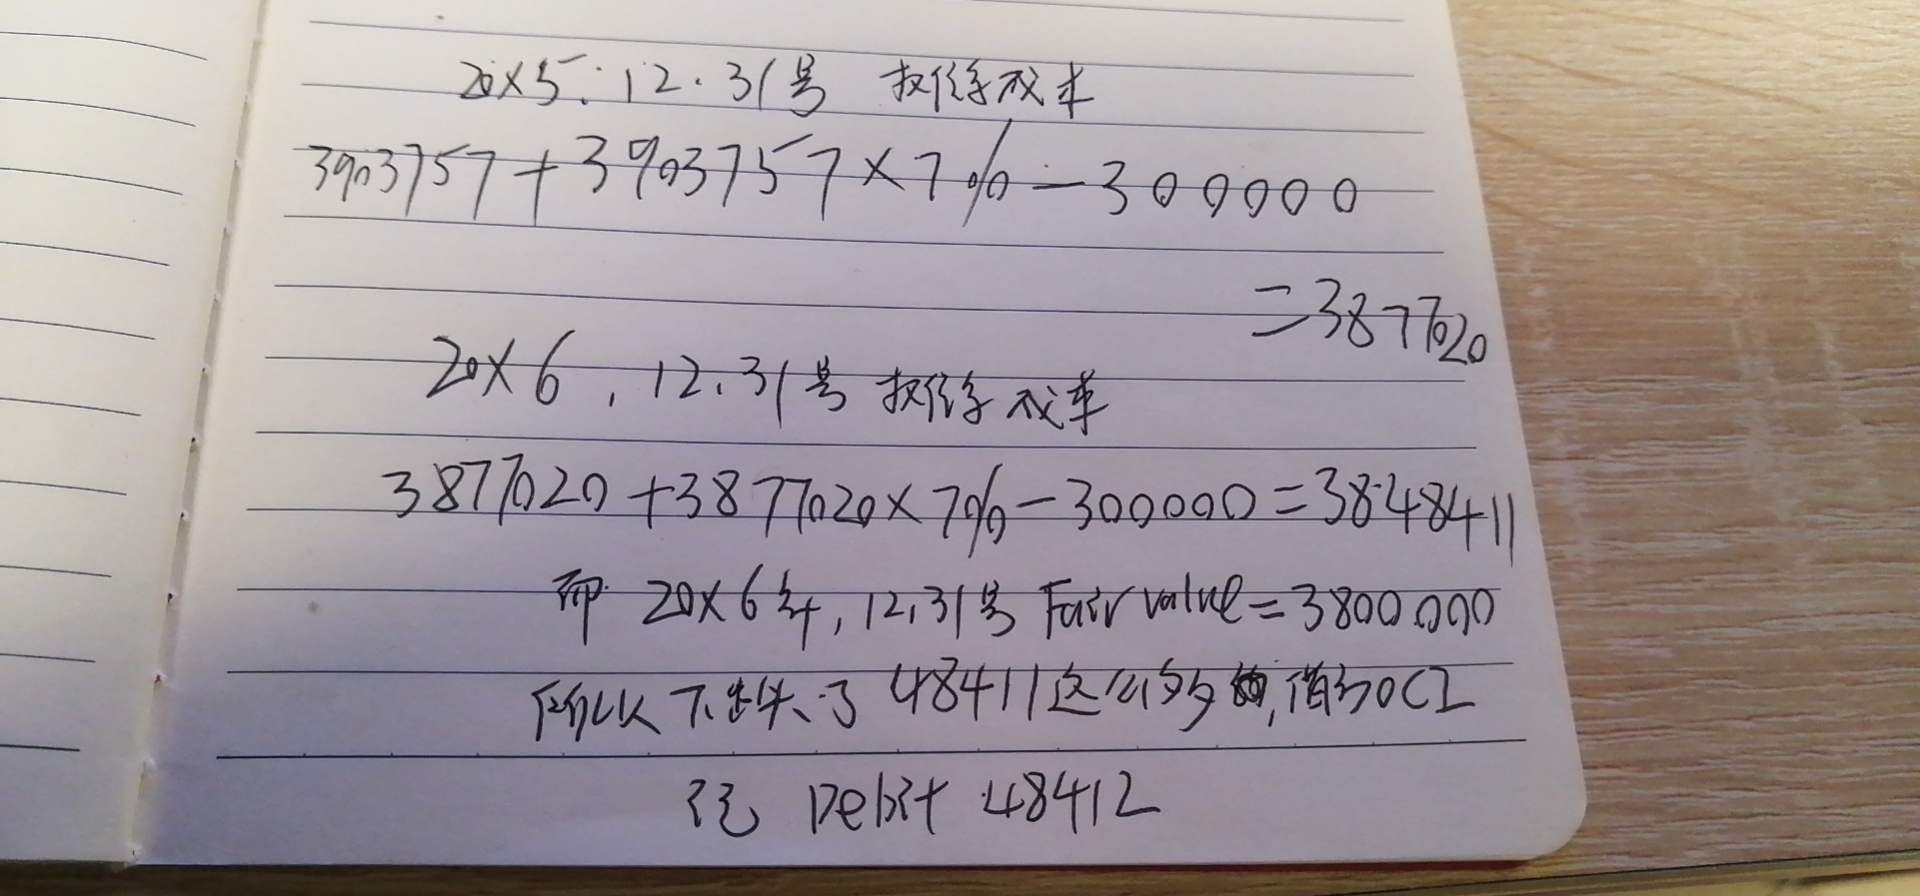 20×5.12.31号 摊余成本
3903757+3903757×7%-300000
=3877020
20×6,12.31号 摊余成本
3877020+3877020×7%-300000=3848411
而 20×6年,12,31号 Fair value=3800000
所以下跌了48411这么多,借方OCI
记 Debit 48412